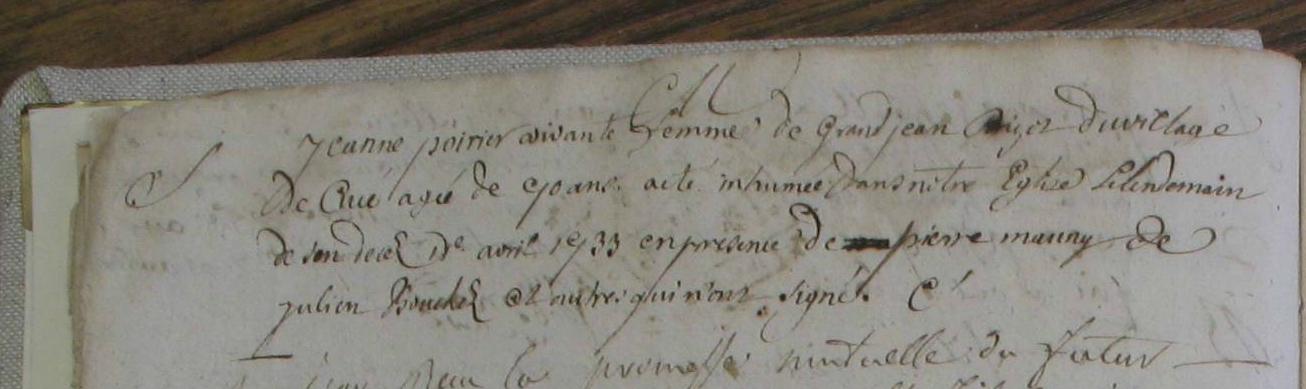 S
Jeanne poirier vivante femme de Grand jean duvillage
De Cué agée de 70 ans a eté inhumée dans nôtre Eglise Lelendemain
de son decez avril 1733 en presence De pierre mauny De
julien Bouchez et autres qui n'ont signé. C
la promesse mutuelle du futur